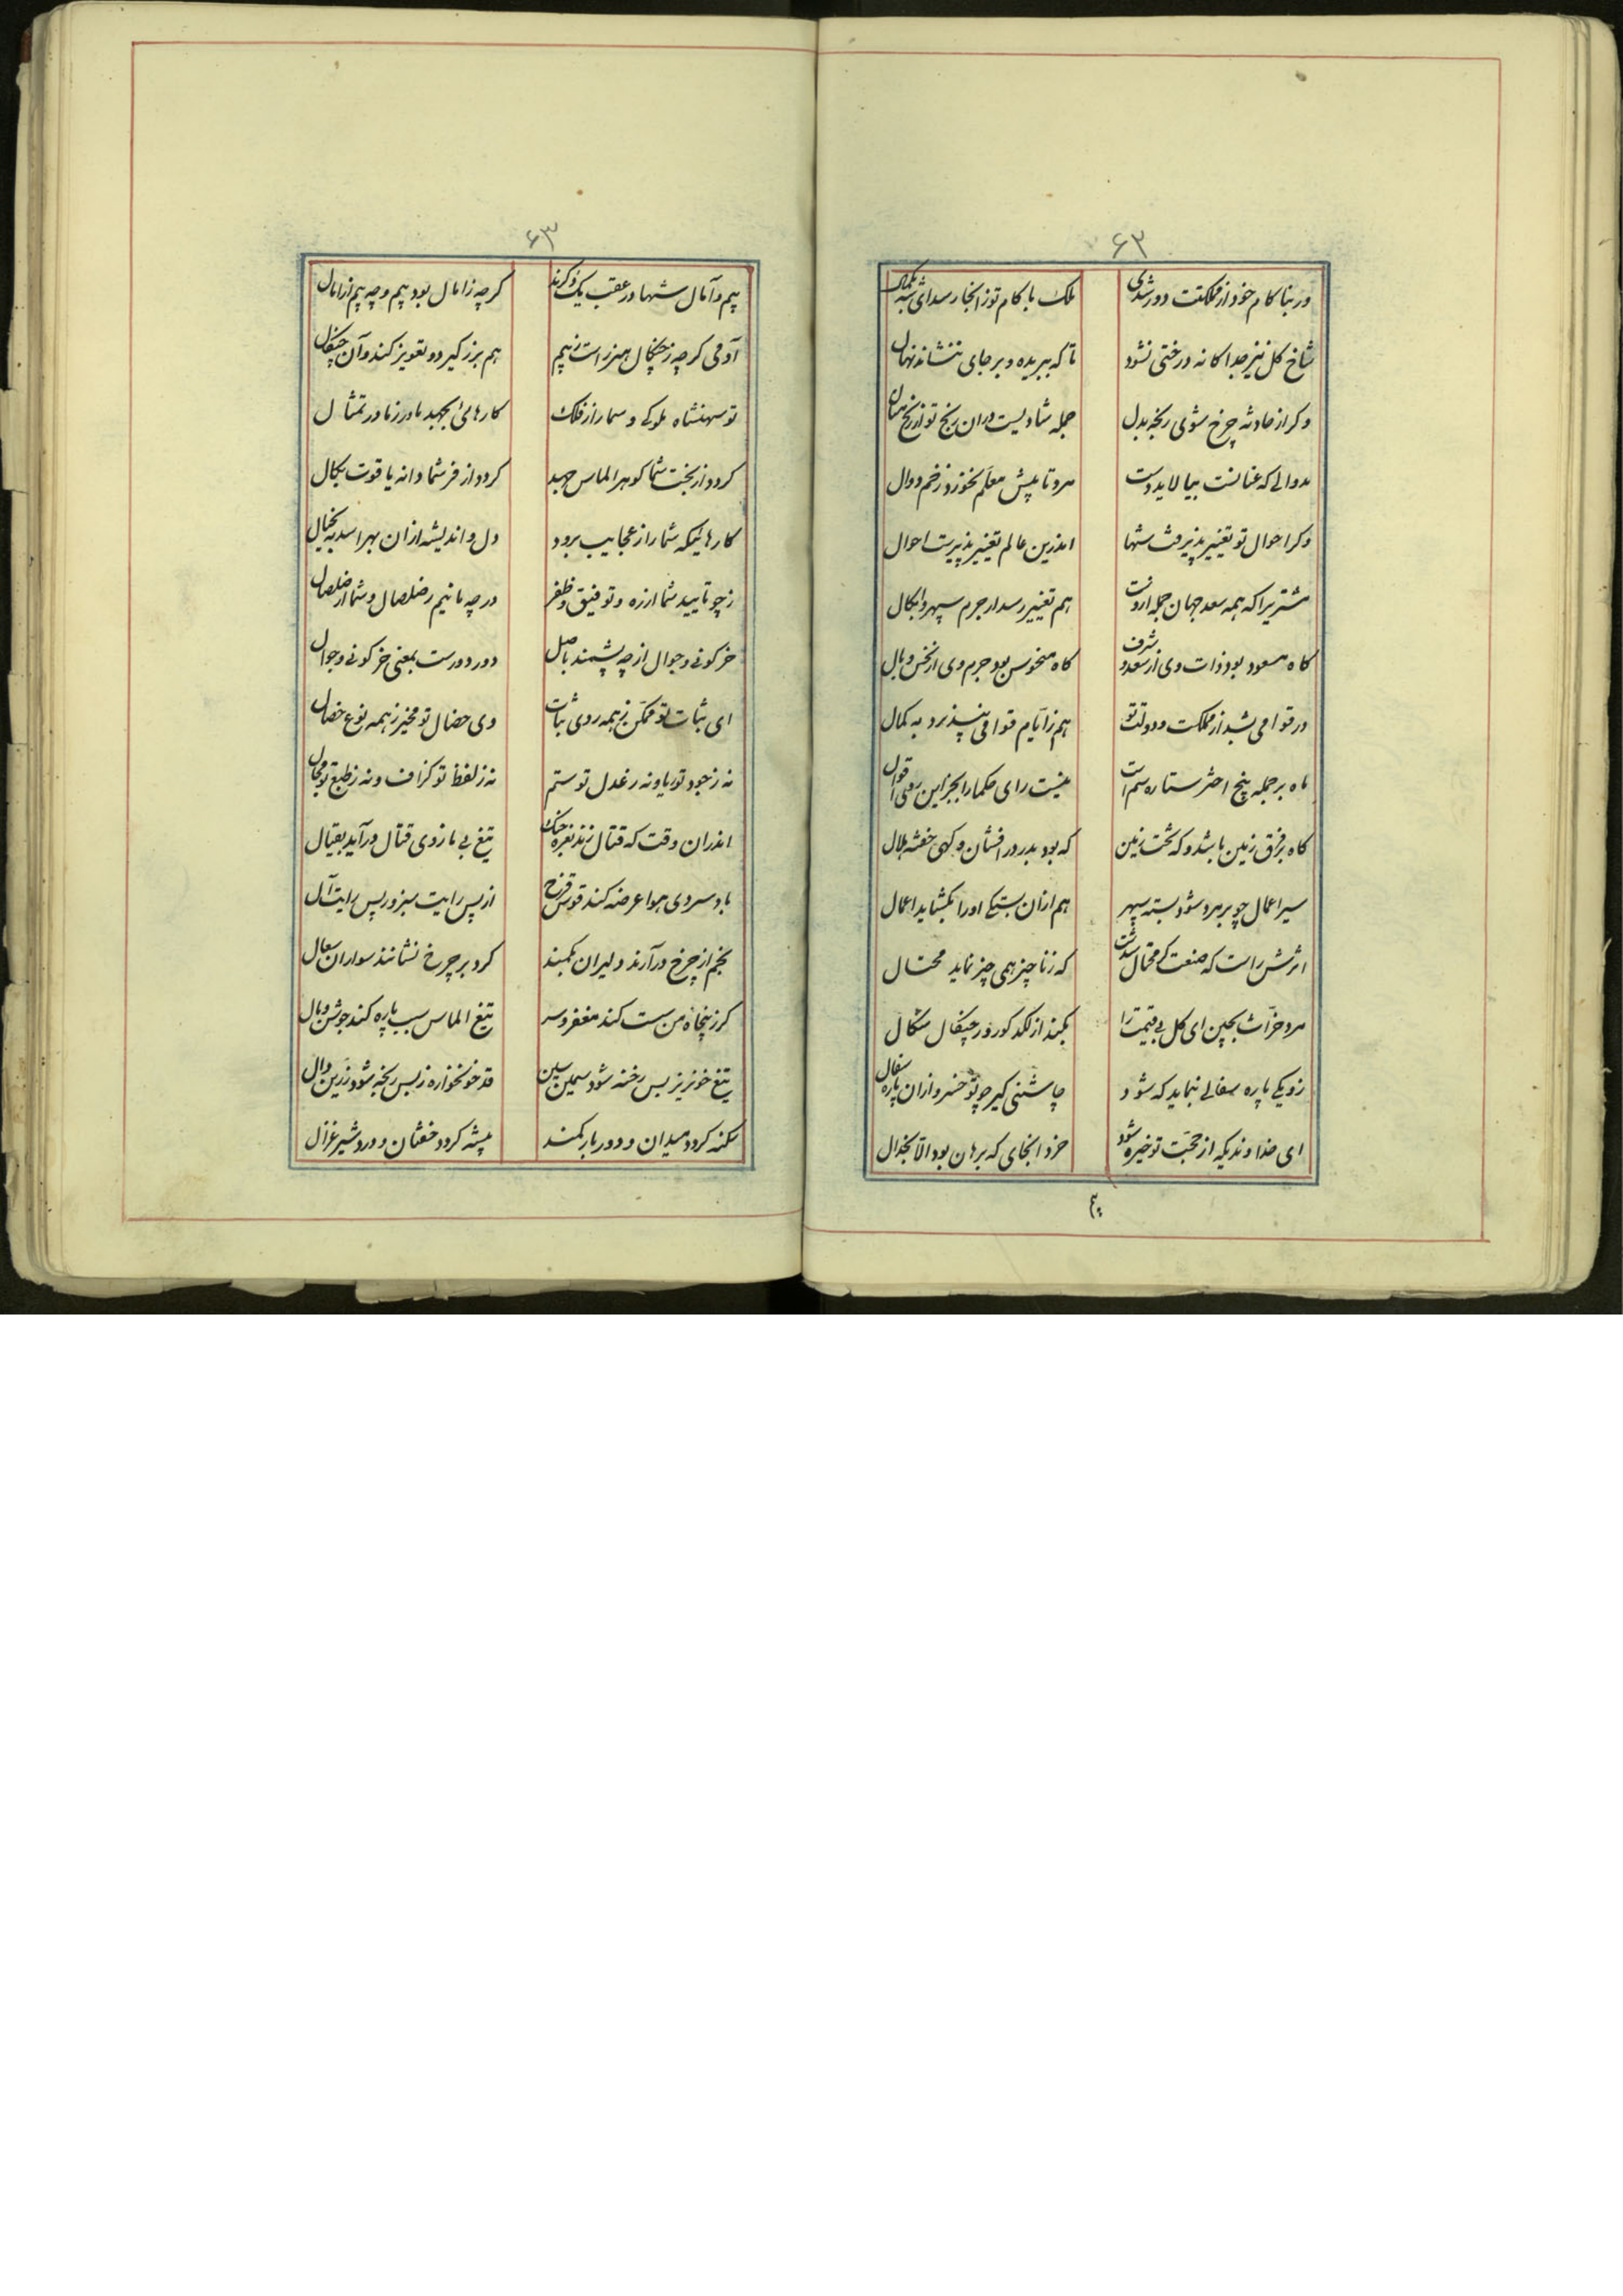 ۶۲
ور بناکام خود از مملکتت دور شدی ملک با کام تو زانجا رسد ای شه بکمال
شاخ کل نیز جداکانه درختی نشود تا که ببریده و بر جای ننشاند نهال
وکر از حادثه چرخ شوی رنجه بدل جمله شادیست دران رنج تو از رنج منال
که عنانت بیالاید دست مرو تا پیش معلم نخورد زخم دوال
وکر احوال تو تغییر پذیرفت شها اندرین عالم تغییر پذیرست احوال
مشتریرا که همه سعد جهان جمله ازوست هم تغییر رسد از جرم سپهر
کاه مسعود بود ذات وی از سعد و شرف کاه منحوس بود جرم وی از نحس و بال
در قوامی بشد از مملکت و دولت تو هم ز ایام قوافی نپذیرد به کمال
ماه بر جمله پنج اختر ستاره سم است نیست رای حکما را بجز این روی اقوال
کاه بر فرق زمین باشد و که تحت زمین که بود بدر درافشان و کهی خفته هلال
سیر اعمال چو بر مرد شود بسته سپهر هم ازان بستکی او را بکشاید اعمال
اثرش راست که صنعت محتال شدست که زنا چیز همی چیز نماید محتال
مرد حراث بچین ای کل بی قیمت را بکند از لکد کور و ز چنکال شکال
زو یکی پاره سفالی نماید که شود چاشنی کیر چو تو خسرو ازان پاره سفال
ای خداوندیکه از حجت تو خیره شود خرد انجای که برهان بود الا بجدال
۶۳
بیم و آمال شها در عقب یک دکرند کر چه ز امال بود بیم و چه بیم از امال
آدمی کر چه ز چنکال هزبر است به بیم هم بزر کیرد و تعویذ کند وآن چنکال
تو شهنشاه ملوکی و سما را ز فلک کارهائی بجهد نادر زنا در تمثال
کردد از بخت شما کوهر الماس جهید کردد از فر شما دانه یاقوت
کارهائیکه شما را ز عجایب برود دل و اندیشه ازان بهراسد به خیال
ز چو تایید شما ارزه و توفیق و ظفر در چه مانیم ز صلصال و شما از صلصال
خر کونی و جوال از چه پشمند باصل دور دورست بمعنی خر کونی و جوال
ای ثبات تو ممکن ز همه روی ثبات وی خصال تو مخیر ز همه نوع خصال
نه ز جود تو ریا و نه ز عدل تو ستم نه ز لفظ تو کزاف و نه ز طبع تو محال
اندران وقت که قتال زند نعره جنک تیغ بی بازوی قتال درآید بقتال
باد سر وی هوا عرضه کند قوس قزح از پس رایت سبز و ز پس رایت آل
نجم از چرخ درآرند دلیران بکمند کرد بر چرخ نشانند سواران بنعال
کرز پنجاه من ست کند مغفر و سر تیغ الماس سبب پاره کند جوشن و یال
تیغ خونریز بس رخنه شود سیمین سین قد خونخواره ز بس رنجه شود زرین دال
سکنه کردد میدان و دور بار کمند بیشه کردد خفتان و درو شیر غزال